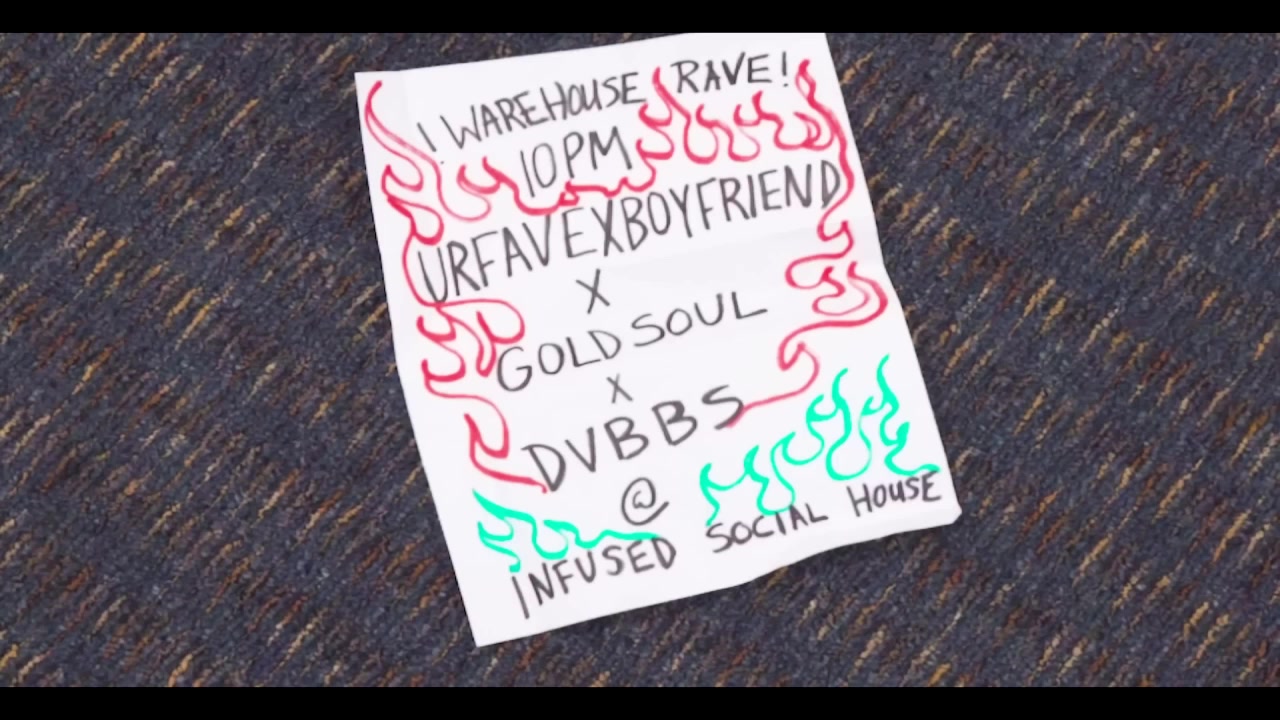 ! WAREHOUSE RAVE!
10PM
URFAVEXBOYFRIEND
X
GOLDSOUL
X
DVBBS
@
INFUSED SOCIAL HOUSE